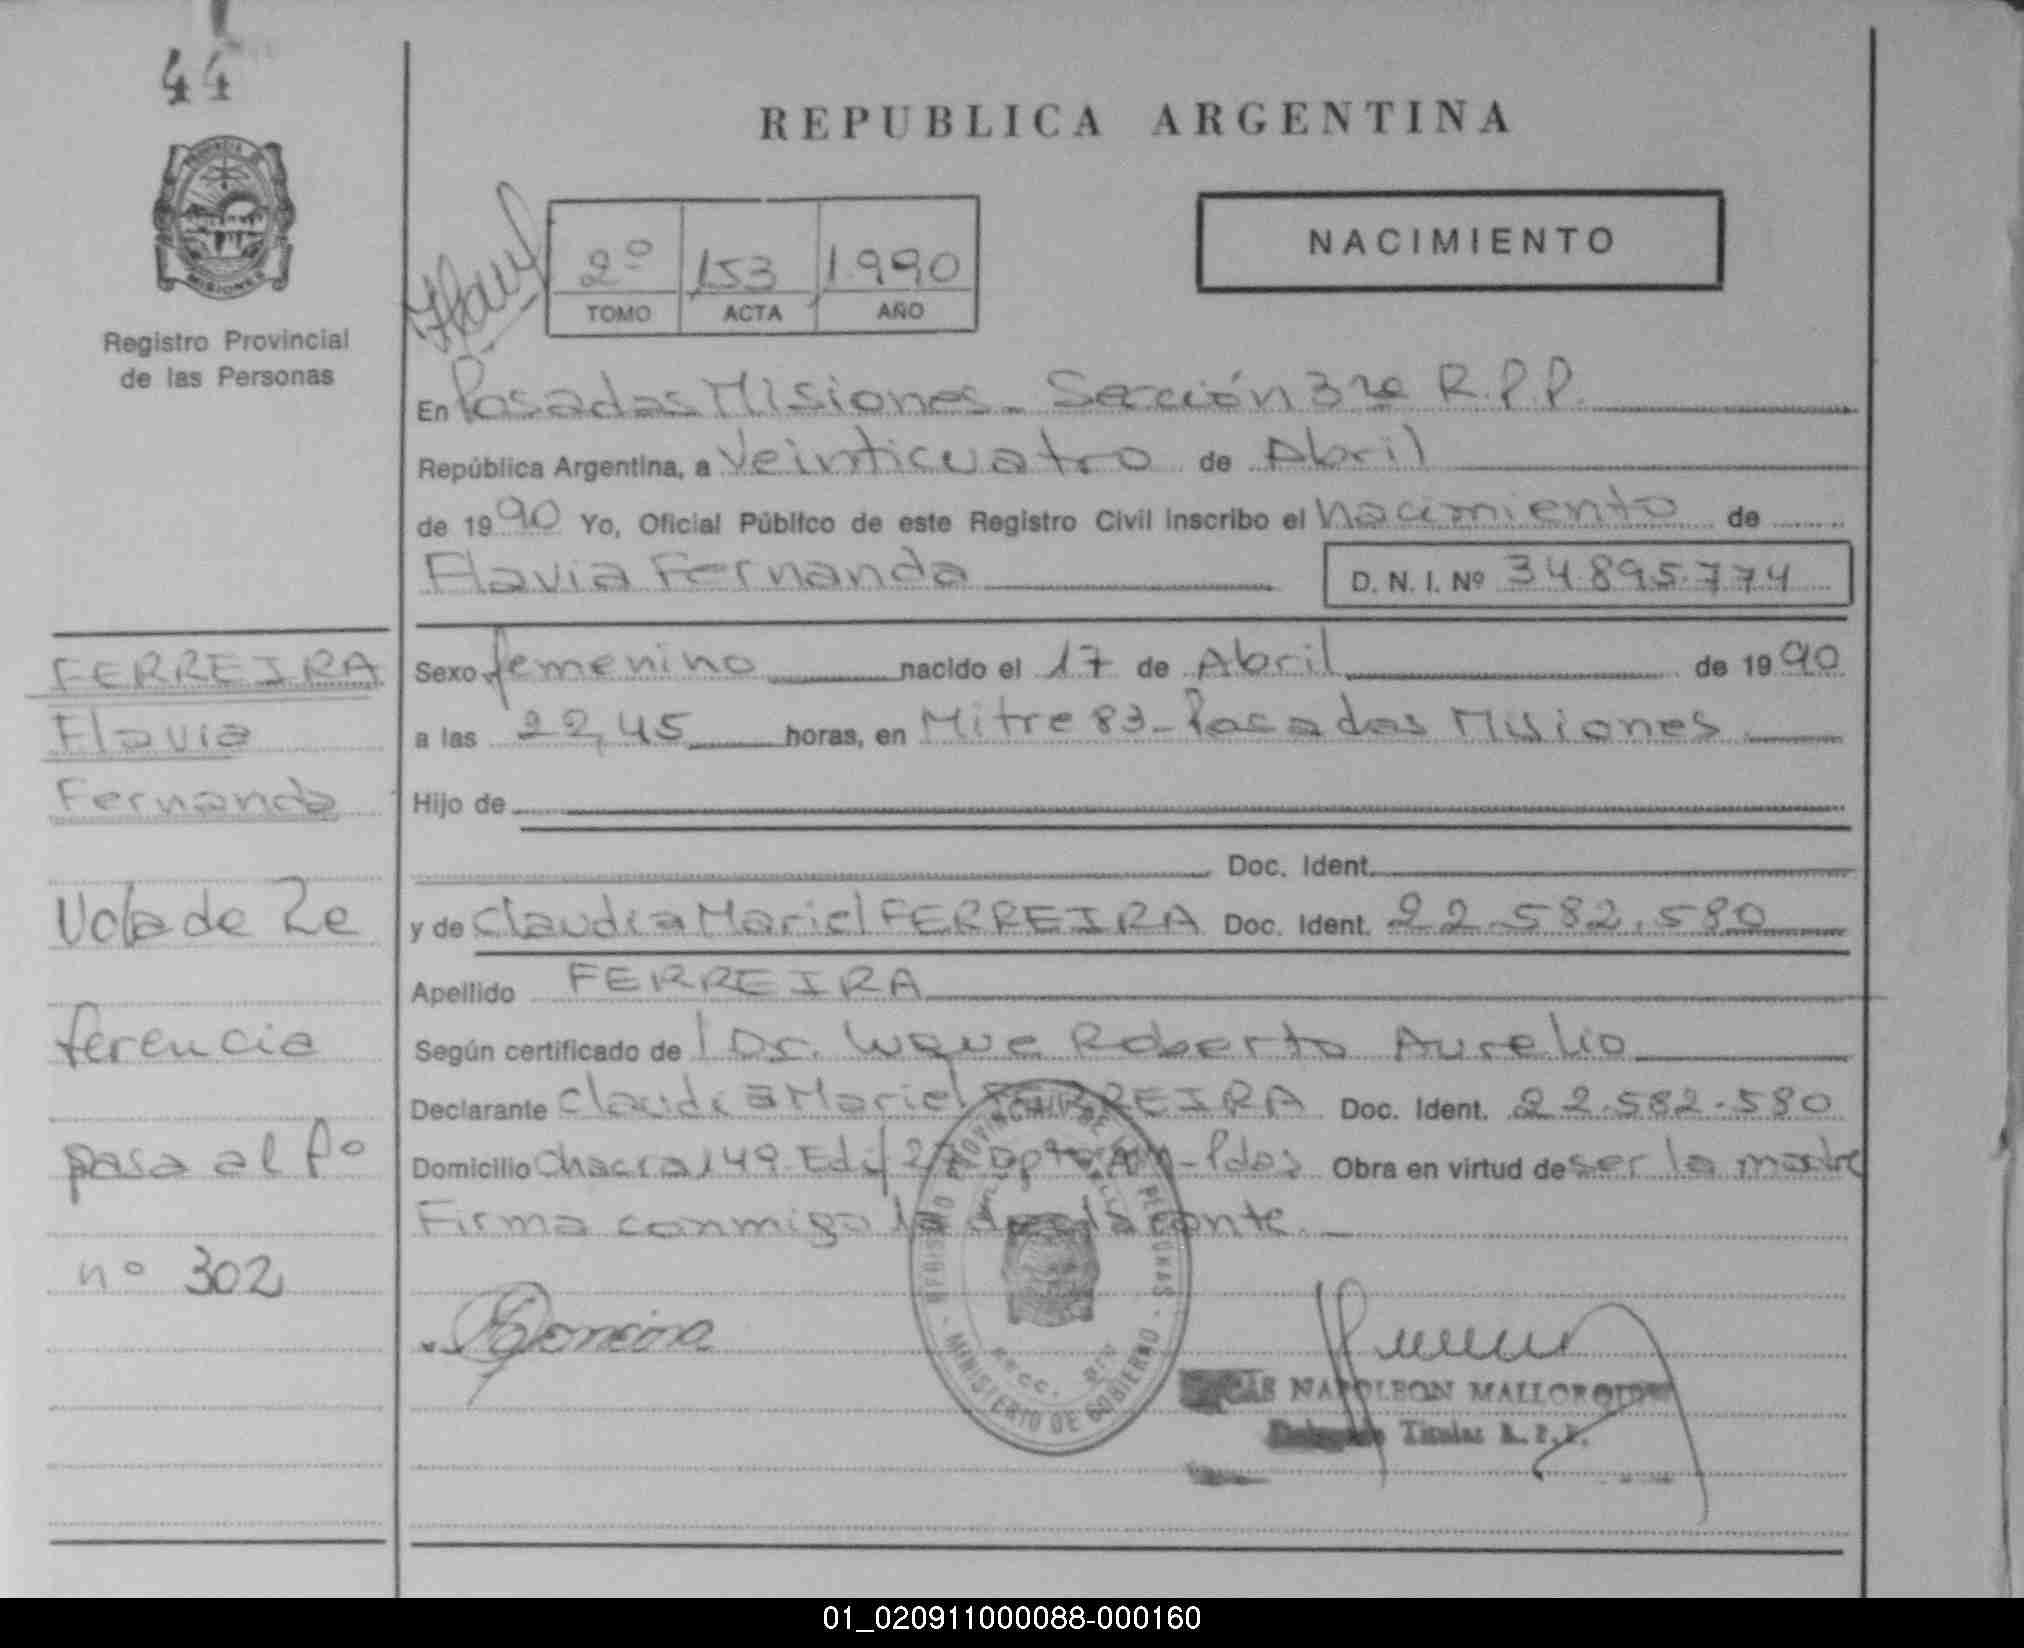 44
REPUBLICA ARGENTINA
NACIMIENTO
2º 153 1990
TOMO ACTA AÑO
PROVINCIA DE
MISIONES
Registro Provincial
de las Personas
En Posadas Misiones - Sección 3ra R.P.P.
República Argentina, a Veinticuatro de Abril
de 1990 Yo, Oficial Público de este Registro Civil inscribo el nacimiento de
Flavia Fernanda D. N. I. Nº 34.895.774
FERREIRA
Flavia
Fernanda
Sexo femenino nacido el 17 de Abril de 1990
a las 22,45 horas, en Mitre 83 - Posadas Misiones
Hijo de
Doc. Ident.
y de Claudia Mariel FERREIRA Doc. Ident. 22.582.580
Apellido FERREIRA
Según certificado de Dr. Luque Roberto Aurelio
Declarante Claudia Mariel FERREIRA Doc. Ident. 22.582.580
Domicilio Chacra 149 Edif 27 Dpto - Pdas Obra en virtud de ser la madre
Firma conmigo la declarante. -
de Re
ferencia
pasa al Fº
nº 302
REGISTRO PROVINCIAL DE LAS PERSONAS
MINISTERIO DE GOBIERNO
NAPOLEON
Titular R.P.P.
01_020911000088-000160